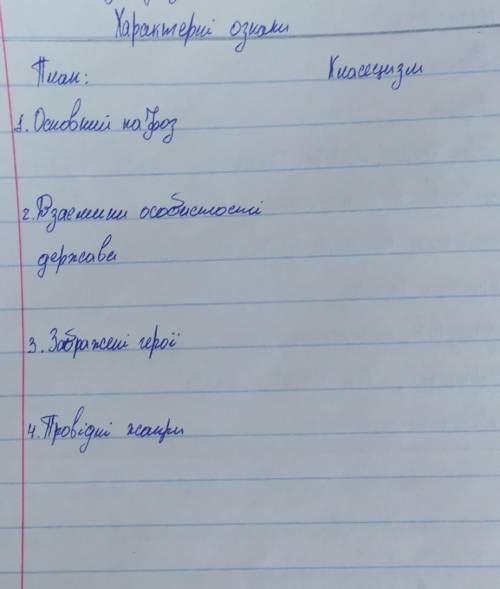 Характерні ознаки
План: Класецизм
1. Основний
2. Взаємини особистості
держава
3. Зображені герої
4. Провідні жанри